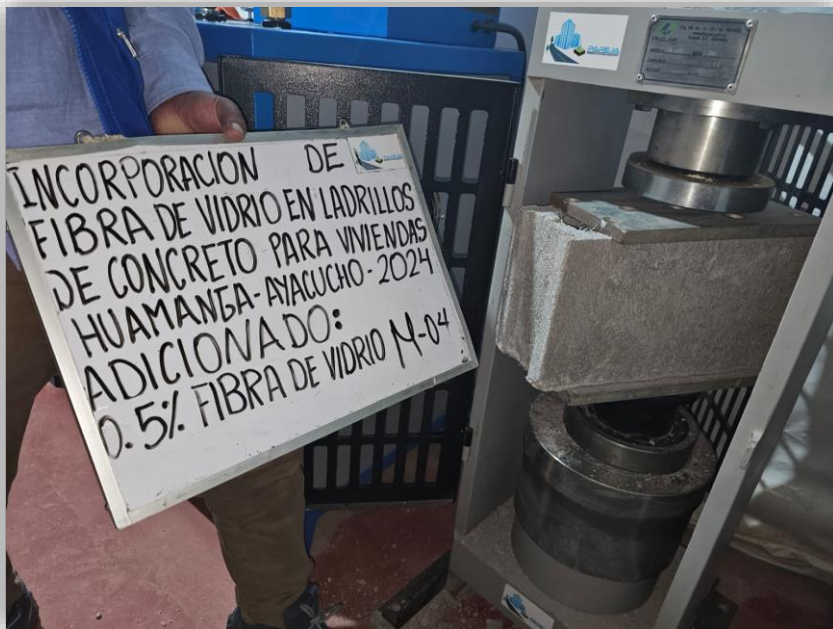 INCORPORACION DE
FIBRA DE VIDRIO EN LADRILLOS
DE CONCRETO PARA VIVIENDAS
HUAMANGA-AYACUCHO-2024
ADICIONADO:
0.5% FIBRA DE VIDRIO M-04
PAREJA